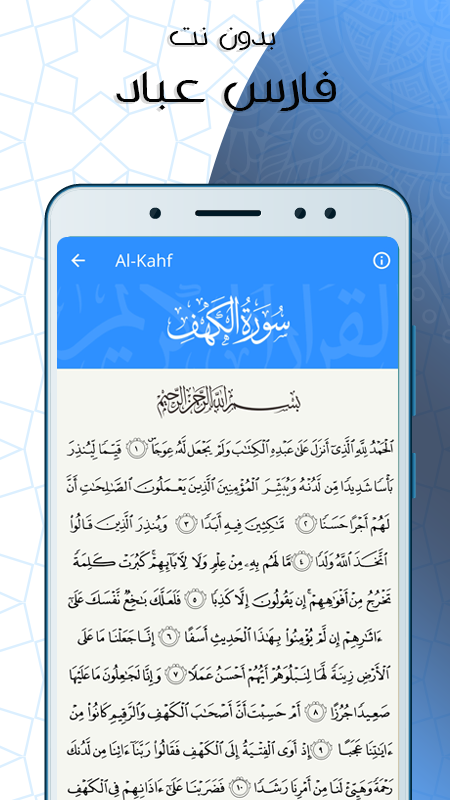 بدون نت
فارس عباد
Al-Kahf
القرآن الكريم
سُورَةُ الكَهْفِ
بِسْمِ اللَّهِ الرَّحْمَٰنِ الرَّحِيمِ
الْحَمْدُ لِلَّهِ الَّذِي أَنزَلَ عَلَىٰ عَبْدِهِ الْكِتَابَ وَلَمْ يَجْعَل لَّهُ عِوَجًا ۜ ١ قَيِّمًا لِّيُنذِرَ
بَأْسًا شَدِيدًا مِّن لَّدُنْهُ وَيُبَشِّرَ الْمُؤْمِنِينَ الَّذِينَ يَعْمَلُونَ الصَّالِحَاتِ أَنَّ
لَهُمْ أَجْرًا حَسَنًا ٢ مَّاكِثِينَ فِيهِ أَبَدًا ٣ وَيُنذِرَ الَّذِينَ قَالُوا
اتَّخَذَ اللَّهُ وَلَدًا ٤ مَّا لَهُم بِهِ مِنْ عِلْمٍ وَلَا لِآبَائِهِمْ ۚ كَبُرَتْ كَلِمَةً
تَخْرُجُ مِنْ أَفْوَاهِهِمْ ۚ إِن يَقُولُونَ إِلَّا كَذِبًا ٥ فَلَعَلَّكَ بَاخِعٌ نَّفْسَكَ عَلَىٰ
ءَاثَارِهِمْ إِن لَّمْ يُؤْمِنُوا بِهَٰذَا الْحَدِيثِ أَسَفًا ٦ إِنَّا جَعَلْنَا مَا عَلَى
الْأَرْضِ زِينَةً لَّهَا لِنَبْلُوَهُمْ أَيُّهُمْ أَحْسَنُ عَمَلًا ٧ وَإِنَّا لَجَاعِلُونَ مَا عَلَيْهَا
صَعِيدًا جُرُزًا ٨ أَمْ حَسِبْتَ أَنَّ أَصْحَابَ الْكَهْفِ وَالرَّقِيمِ كَانُوا مِنْ
ءَايَاتِنَا عَجَبًا ٩ إِذْ أَوَى الْفِتْيَةُ إِلَى الْكَهْفِ فَقَالُوا رَبَّنَا ءَاتِنَا مِن لَّدُنكَ
رَحْمَةً وَهَيِّئْ لَنَا مِنْ أَمْرِنَا رَشَدًا ١٠ فَضَرَبْنَا عَلَىٰ ءَاذَانِهِمْ فِي الْكَهْفِ